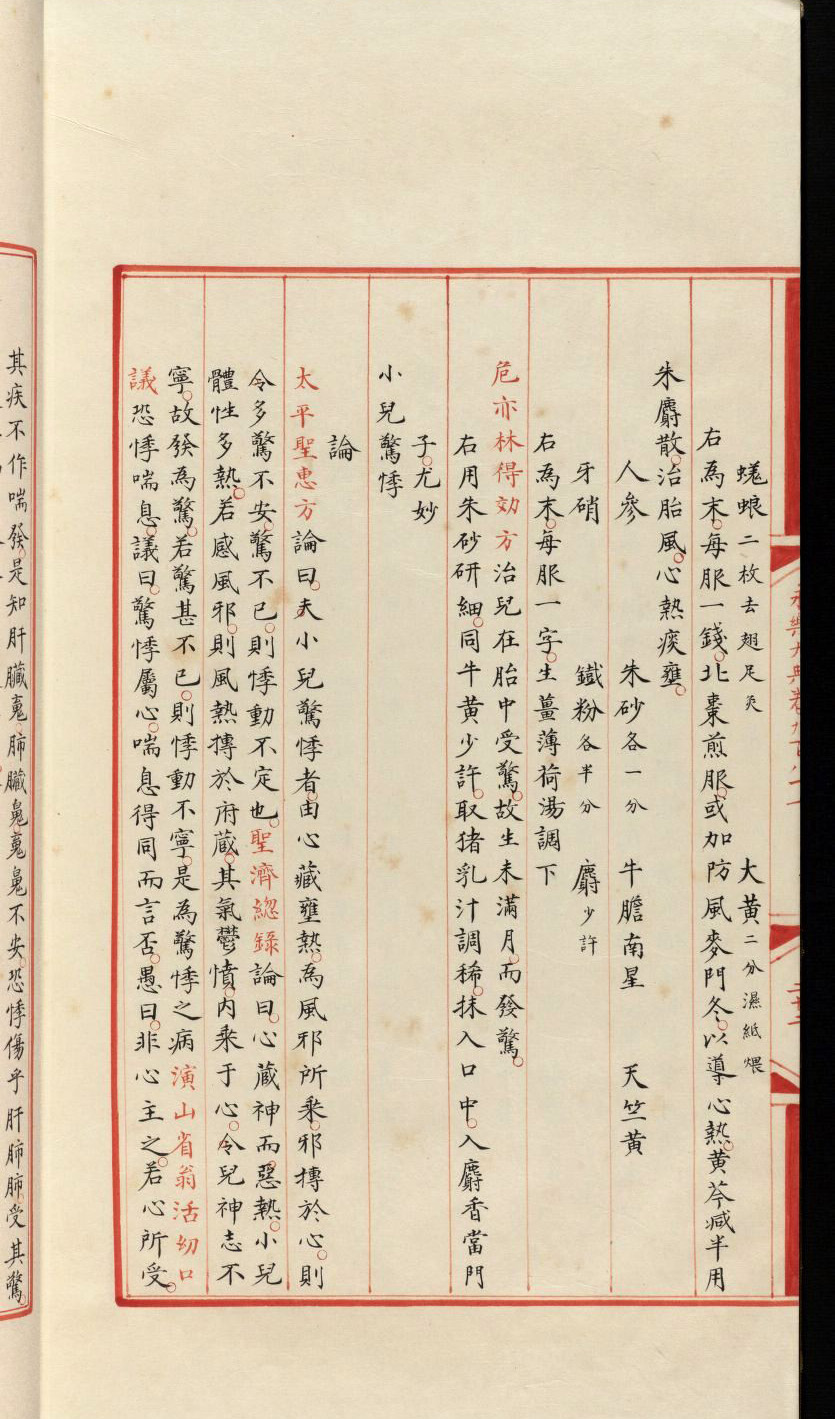 蜣蜋二枚去翅足炙 大黄二分濕紙煨
右為末。每服一錢。北棗煎服。或加防風麥門冬。以導心熱。黄芩減半用
朱麝散。治胎風。心熱痰壅。
人參 朱砂各一分 牛膽南星 天竺黄
牙硝 鐵粉各半分 麝少許
右為末。每服一字。生薑薄荷湯調下
危亦林得効方治兒在胎中受驚。故生未滿月。而發驚。
右用朱砂研細。同牛黄少許。取猪乳汁調稀。抹入口中。入麝香當門
子。尤妙
小兒驚悸
論
太平聖惠方論曰。夫小兒驚悸者。由心藏壅熱。為風邪所乘。邪摶於心。則
令多驚不安。驚不已。則悸動不定也。聖濟緫錄論曰。心藏神而惡熱。小兒
體性多熱。若感風邪。則風熱摶於府蔵。其氣鬱憤。内乘于心。令兒神志不
寧。故發為驚。若驚甚不已。則悸動不寧。是為驚悸之病演山省翁活幼口
議恐悸喘息。議曰。驚悸屬心。喘息得同而言否。愚曰。非心主之。若心所受。
其疾不作喘發。是知肝臟䰟肺臟䰟不安。恐悸傷乎肝肺。肺受其驚。